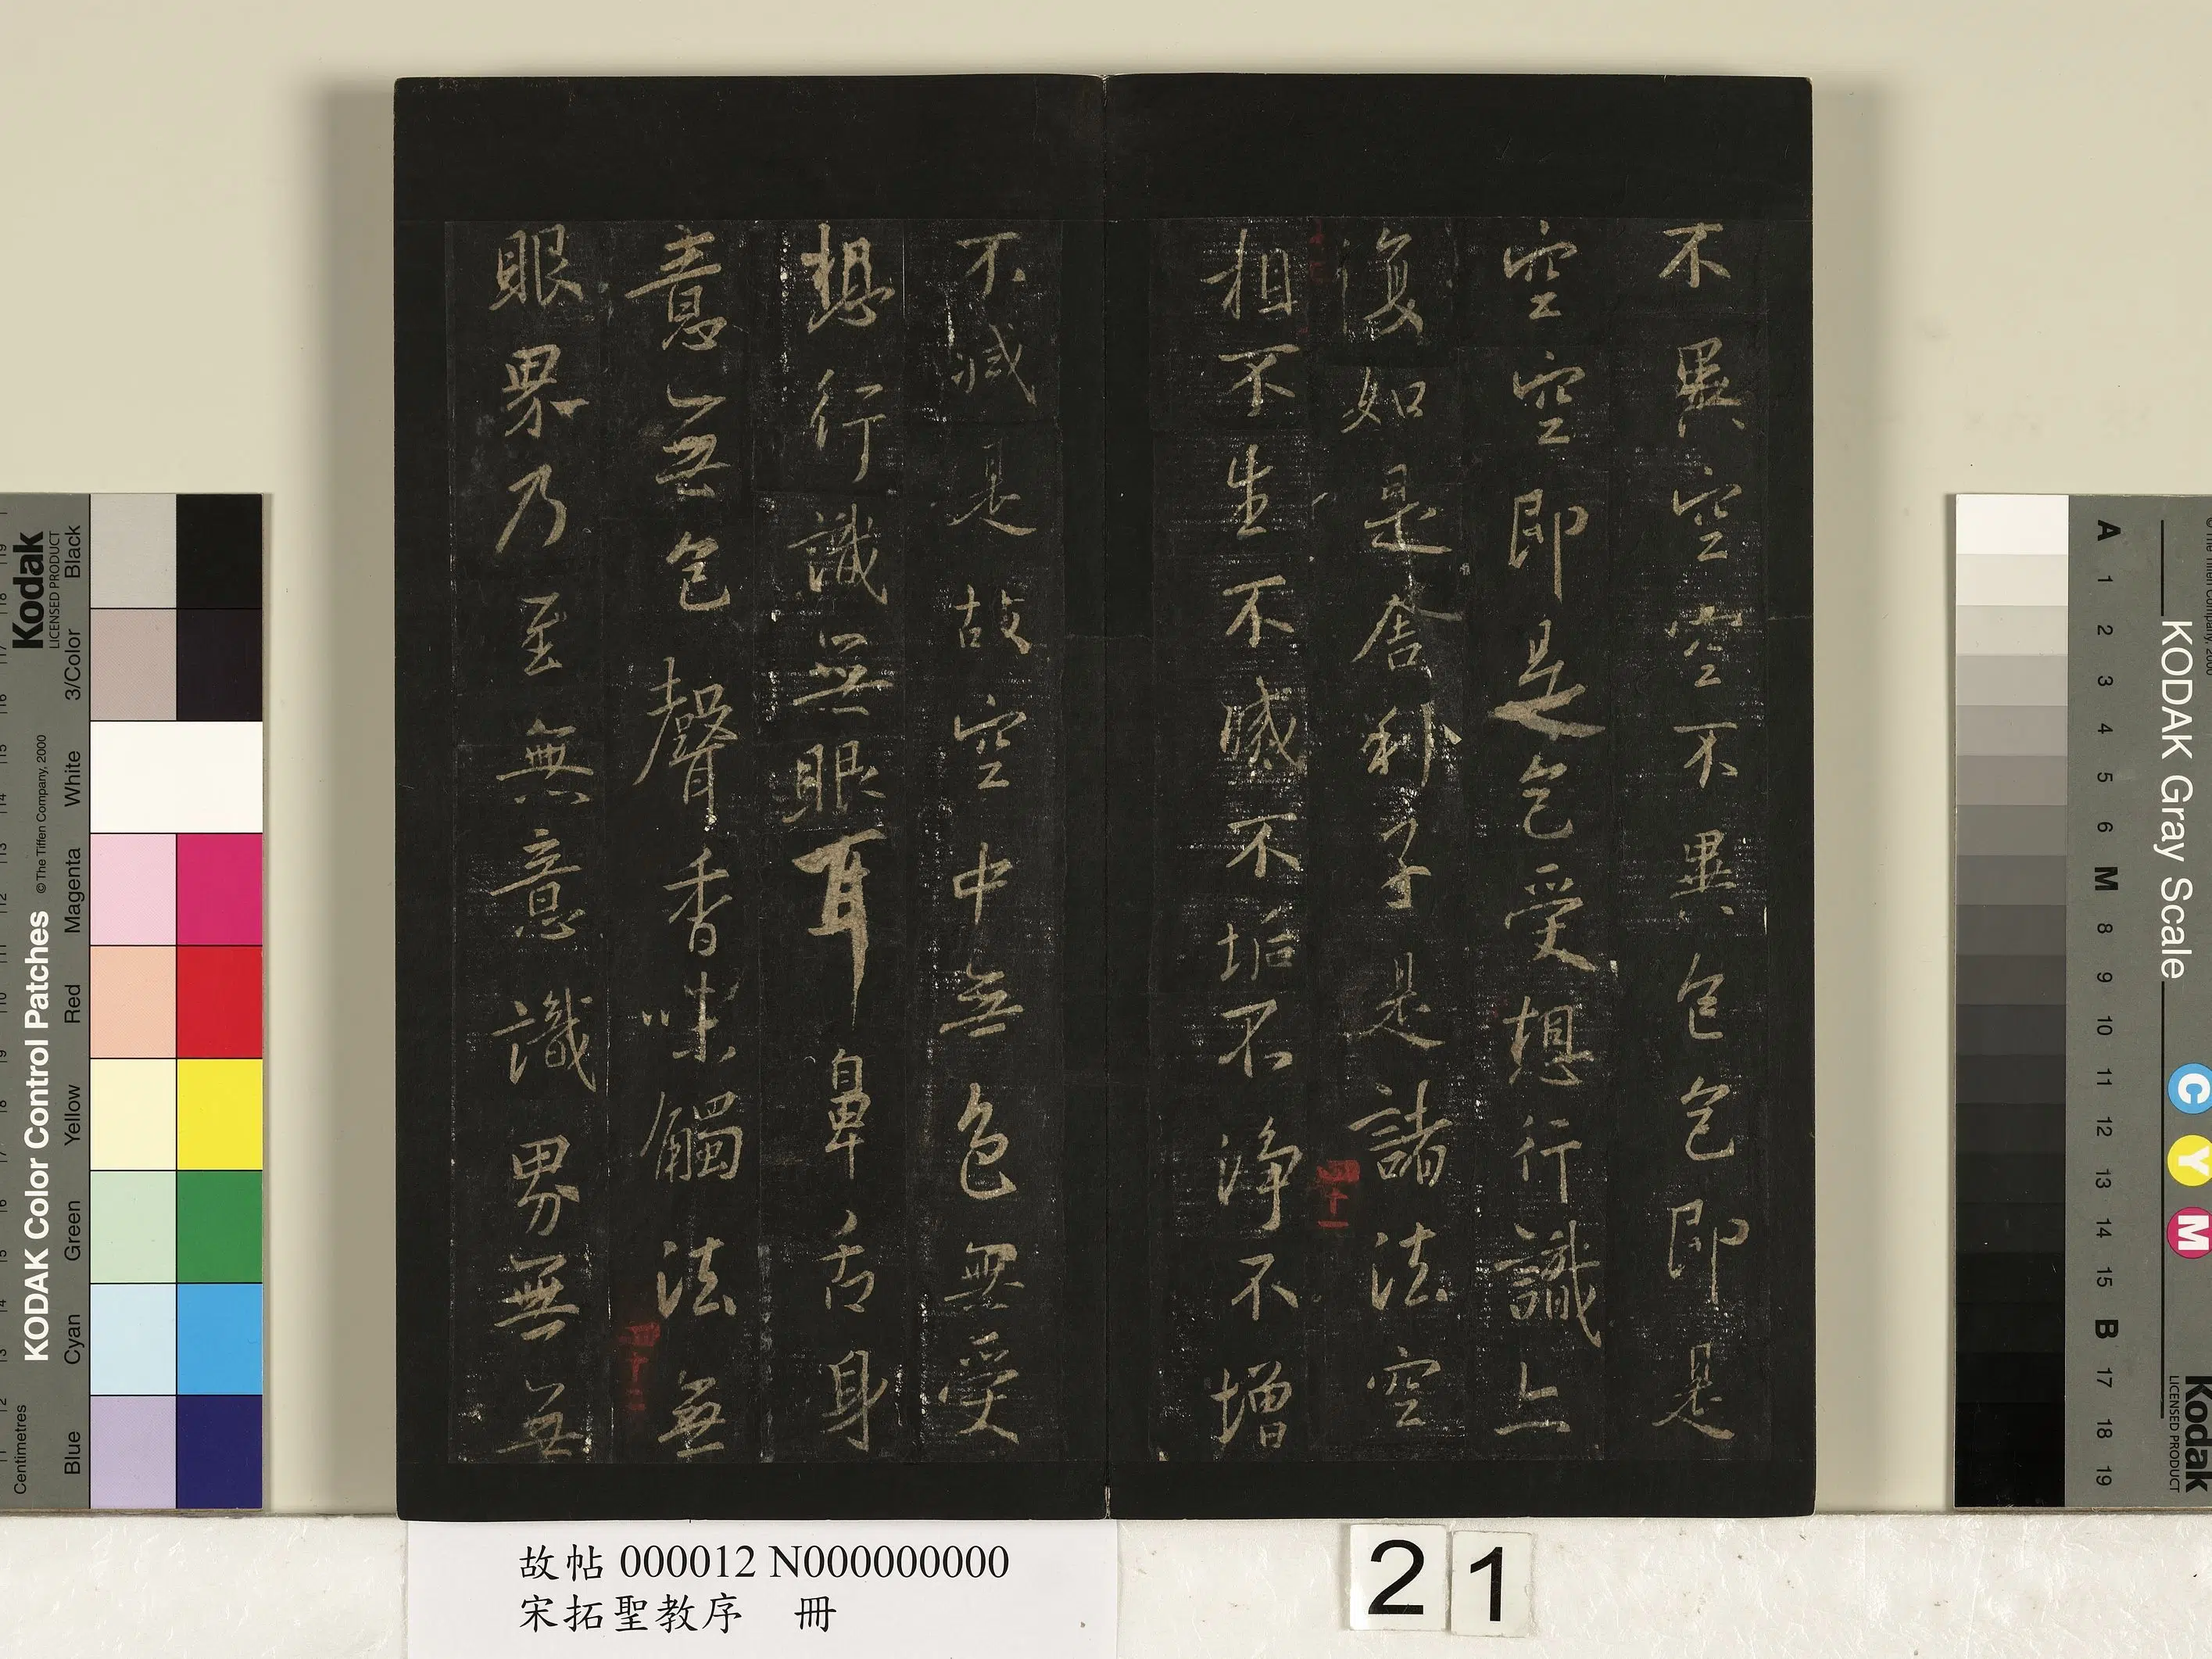 不異空空不異色色即是
空空即是色受想行識亦
復如是舍利子是諸法空
相不生不滅不垢不淨不增
不減是故空中無色無受
想行識無眼耳鼻舌身
意無色聲香味觸法無
眼界乃至無意識界無無
四十一
四十二
故帖 000012 N000000000
宋拓聖教序 冊
21
KODAK Color Control Patches
© The Tiffen Company, 2000
Kodak
LICENSED PRODUCT
Centimetres
Blue Cyan Green Yellow Red Magenta White 3/Color Black
KODAK Gray Scale
C Y M
Kodak
LICENSED PRODUCT
A 1 2 3 4 5 6 M 8 9 10 11 12 13 14 15 B 17 18 19